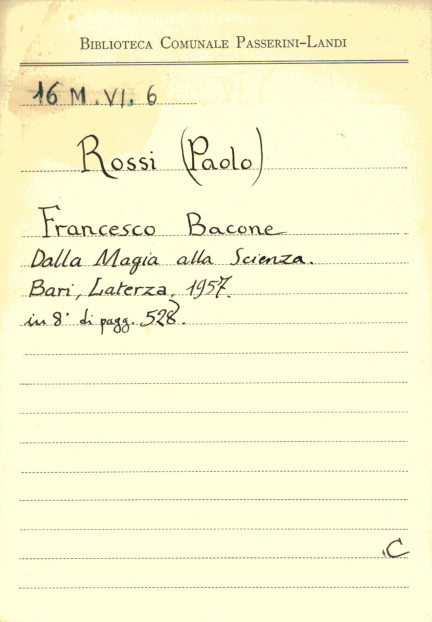 BIBLIOTECA COMUNALE PASSERINI-LANDI
16 M. VI. 6
Rossi (Paolo)
Francesco Bacone
Dalla Magia alla Scienza.
Bari, Laterza, 1957.
in 8° di pagg. 528.
C